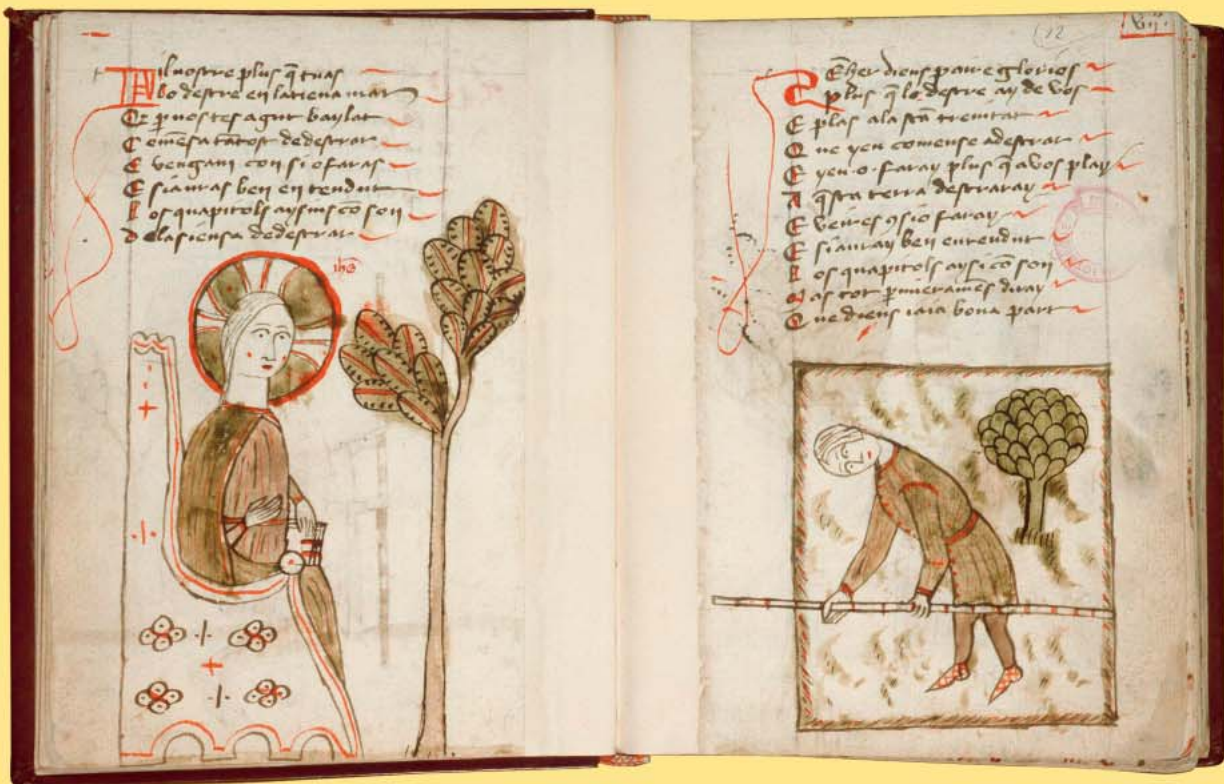 Fil nostre plus q̃ tu as
lo destre en la tiena man
Or pueis tes agut baylat
Comẽsa tãtost de destrar
E veyam con si o faras
E si auras ben entendut
Los quapitols aysins cõ son
de la siensa de destrar
ihs̃
12
viij
Senher dieus paire glorios
plus q̃ lo destre ay de vos
E plas a la stã trenitat
Que yeu comense a destrar
E yeu o faray plus q̃ a vos play
Aq̃sta terra destraray
E veires 9 si o faray
E si auray ben entendut
Los quapitols aysi cõ son
Mas tot primeramẽs diray
Que dieus i aia bona part